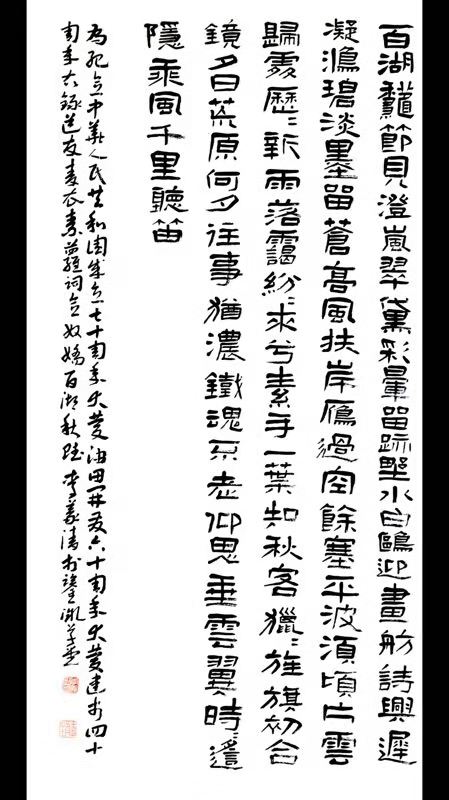 百湖節見澄嵐翠黛彩暈留野水白鷗迎畫舫詩興遲
凝鴻碧淡墨留蒼高風扶岸雁過空餘塞平波頃片雲
歸處歷〻新雨落靄紛〻求兮素手一葉知秋客獵〻旌旗初合
鏡夕日荒原何夕往事猶濃鐵魂不老仰思垂雲翼時〻遙
隱乘風千里聽笛
為紀念中華人民共和國成立七十周年大慶油田開發六十周年大慶建市四十
周年錄道友青衣素蘿詞念奴嬌百湖秋 李義濤書草堂